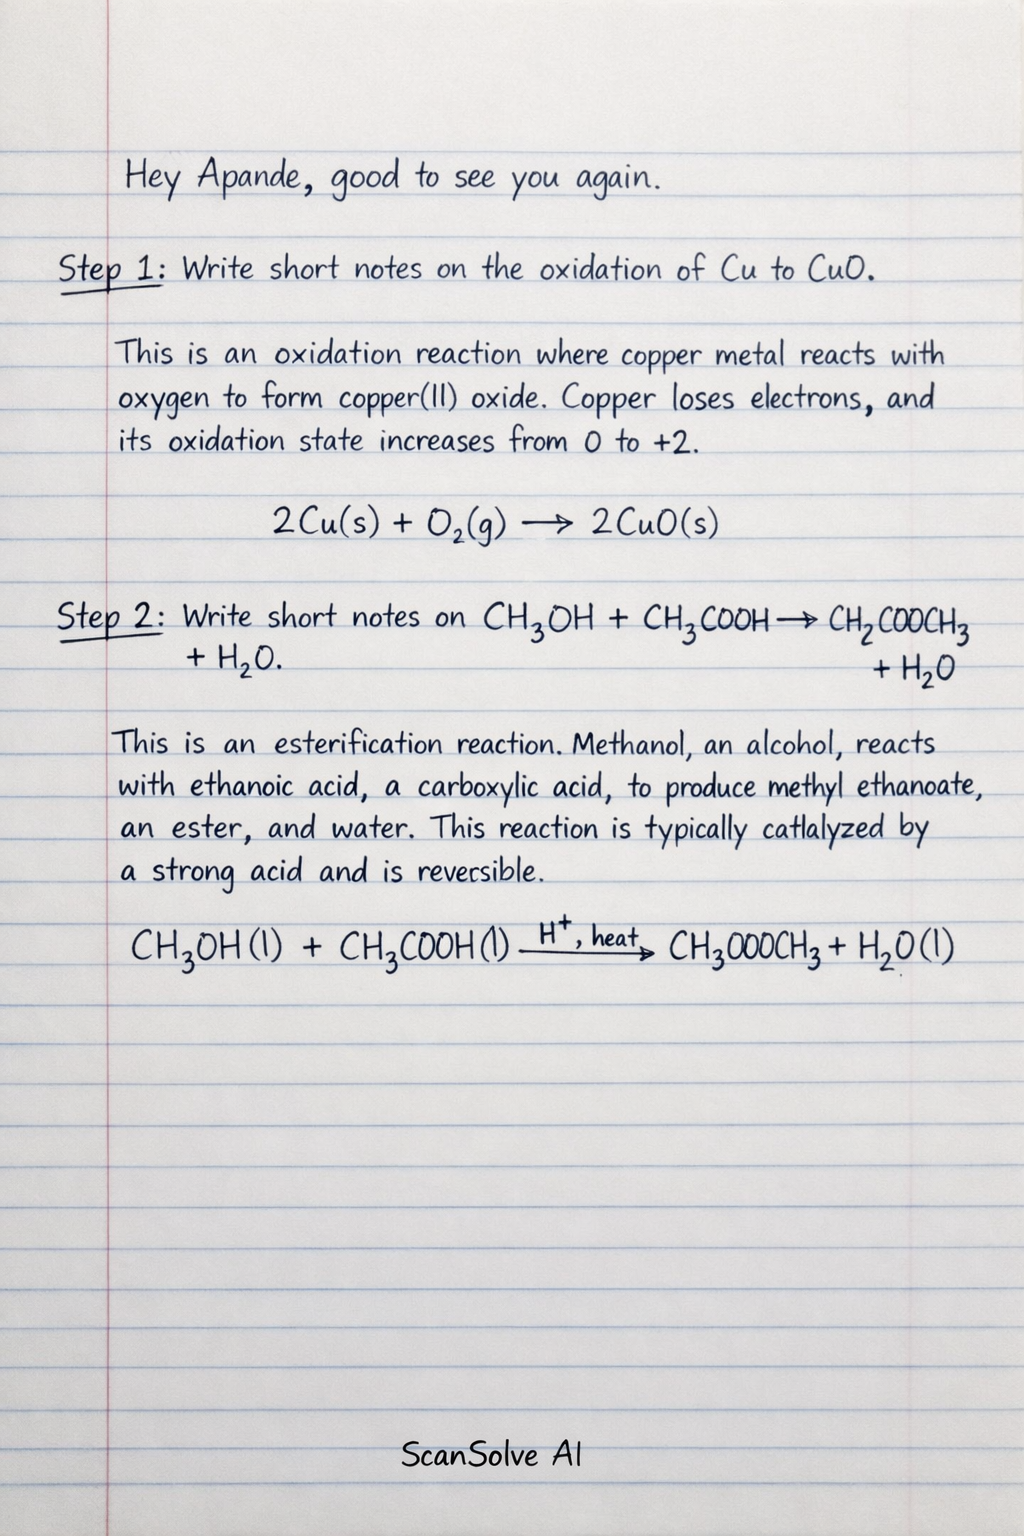 Hey Apande, good to see you again.
Step 1: Write short notes on the oxidation of Cu to CuO.
This is an oxidation reaction where copper metal reacts with
oxygen to form copper(II) oxide. Copper loses electrons, and
its oxidation state increases from 0 to +2.
2Cu(s) + O₂(g) → 2CuO(s)
Step 2: Write short notes on CH₃OH + CH₃COOH → CH₂COOCH₃
+ H₂O. + H₂O
This is an esterification reaction. Methanol, an alcohol, reacts
with ethanoic acid, a carboxylic acid, to produce methyl ethanoate,
an ester, and water. This reaction is typically catlalyzed by
a strong acid and is reversible.
CH₃OH(l) + CH₃COOH(l) H⁺, heat → CH₃OOOCH₃ + H₂O(l)
ScanSolve AI